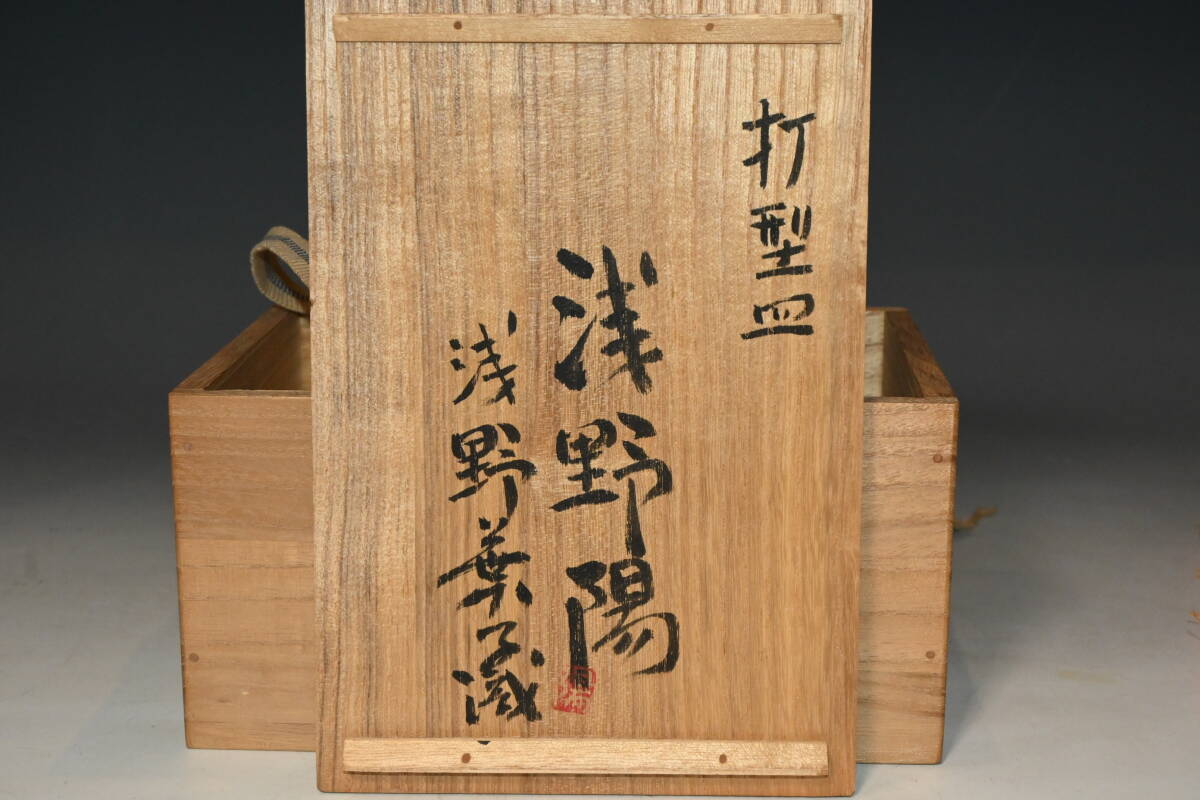 打型皿
浅野陽
浅野葉子識